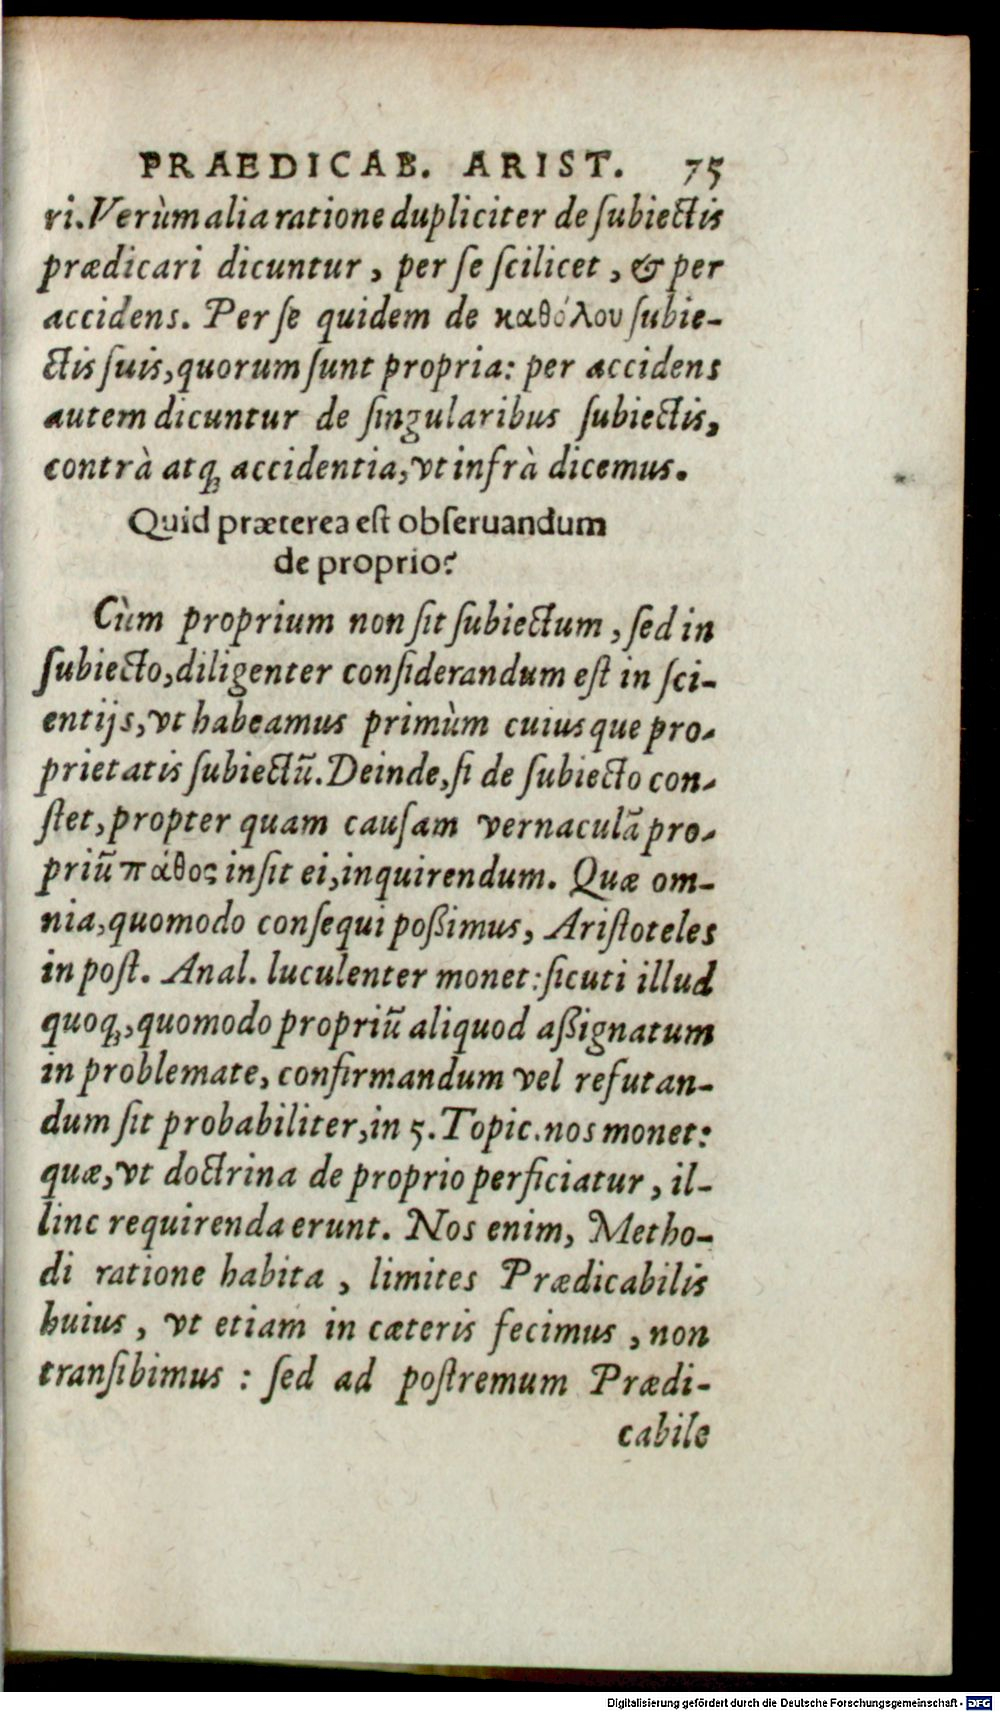 PRAEDICAB. ARIST. 75
ri. Verùm alia ratione dupliciter de ſubiectis
prædicari dicuntur, per ſe ſcilicet, & per
accidens. Per ſe quidem de καθόλου ſubie-
ctis ſuis, quorum ſunt propria: per accidens
autem dicuntur de ſingularibus ſubiectis,
contrà atq; accidentia, vt infrà dicemus.
Quid præterea eſt obſeruandum
de proprio?
Cùm proprium non ſit ſubiectum, ſed in
ſubiecto, diligenter conſiderandum eſt in ſci-
entijs, vt habeamus primùm cuiusque pro-
prietatis ſubiectū. Deinde, ſi de ſubiecto con-
ſtet, propter quam cauſam vernaculā pro-
priū πάθος inſit ei, inquirendum. Quæ om-
nia, quomodo conſequi poßimus, Ariſtoteles
in poſt. Anal. luculenter monet: ſicuti illud
quoq;, quomodo propriū aliquod aßignatum
in problemate, confirmandum vel refutan-
dum ſit probabiliter, in 5. Topic. nos monet:
quæ, vt doctrina de proprio perficiatur, il-
linc requirenda erunt. Nos enim, Metho-
di ratione habita, limites Prædicabilis
huius, vt etiam in cæteris fecimus, non
tranſibimus: ſed ad poſtremum Prædi-
cabile
Digitalisierung gefördert durch die Deutsche Forschungsgemeinschaft - DFG